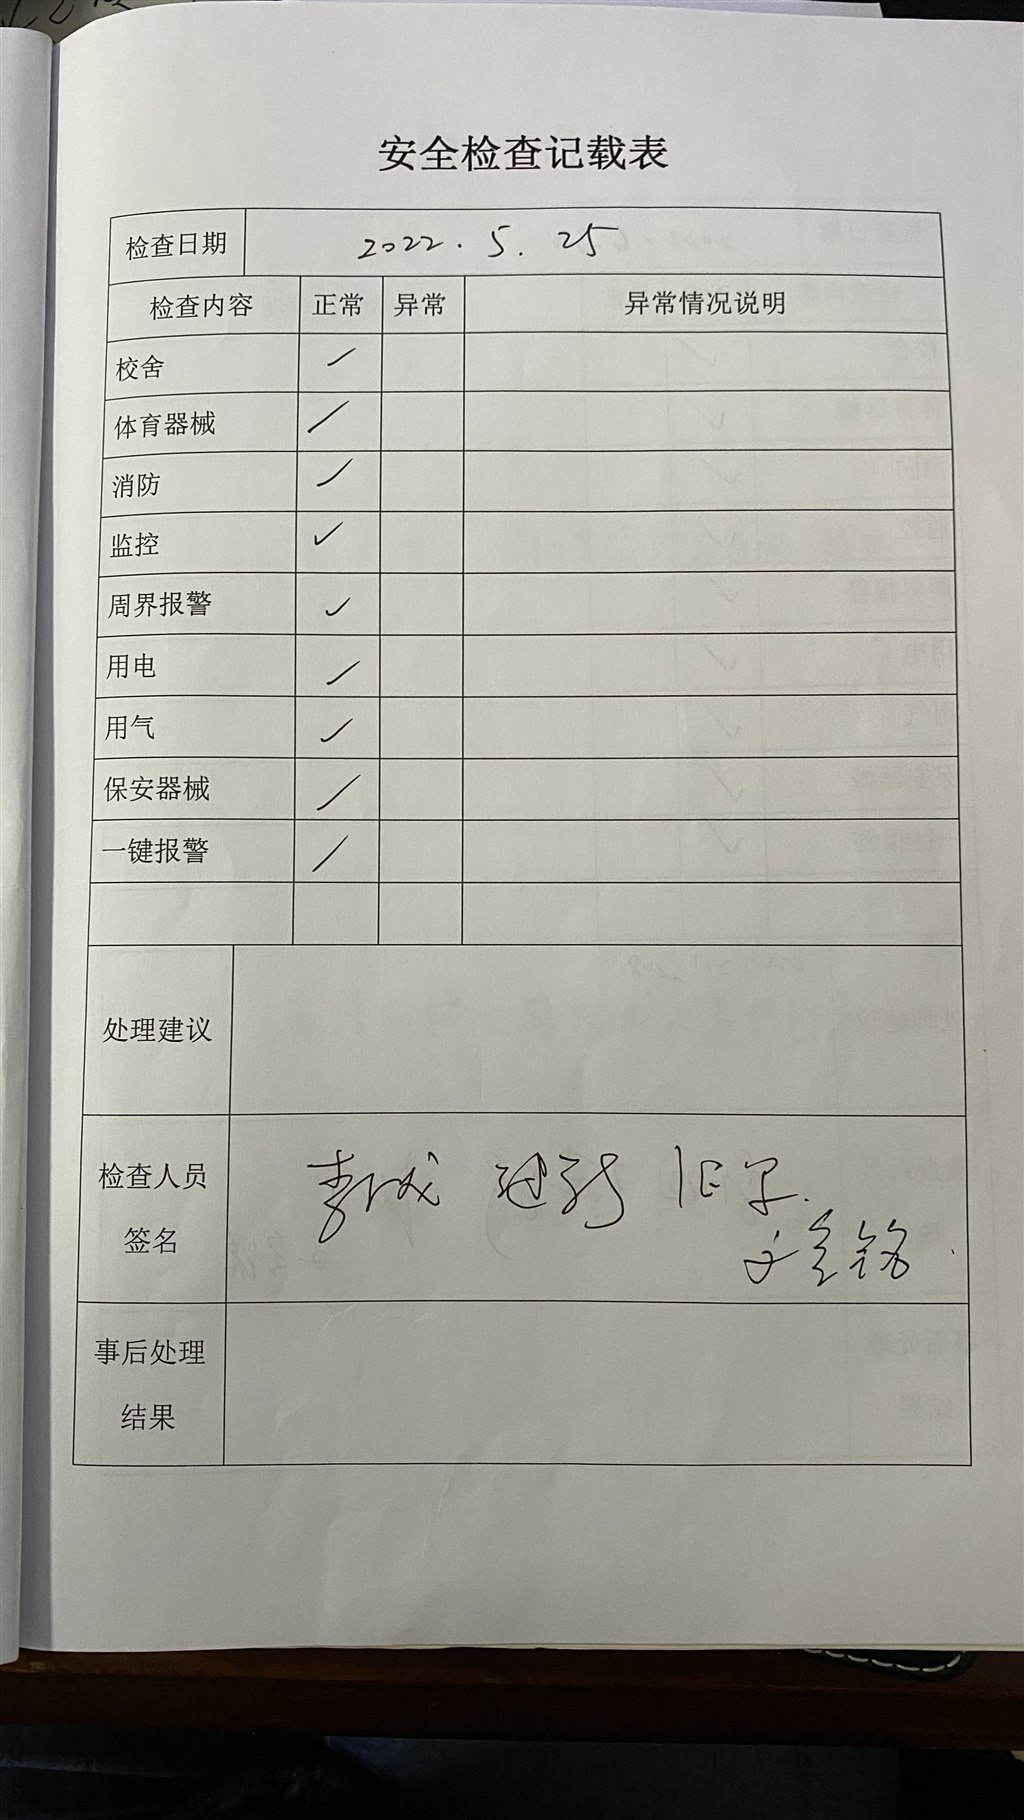 安全检查记载表
检查日期 2022.5.25
检查内容 正常 异常 异常情况说明
校舍 ✓
体育器械 ✓
消防 ✓
监控 ✓
周界报警 ✓
用电 ✓
用气 ✓
保安器械 ✓
一键报警 ✓
处理建议
检查人员
签名
事后处理
结果